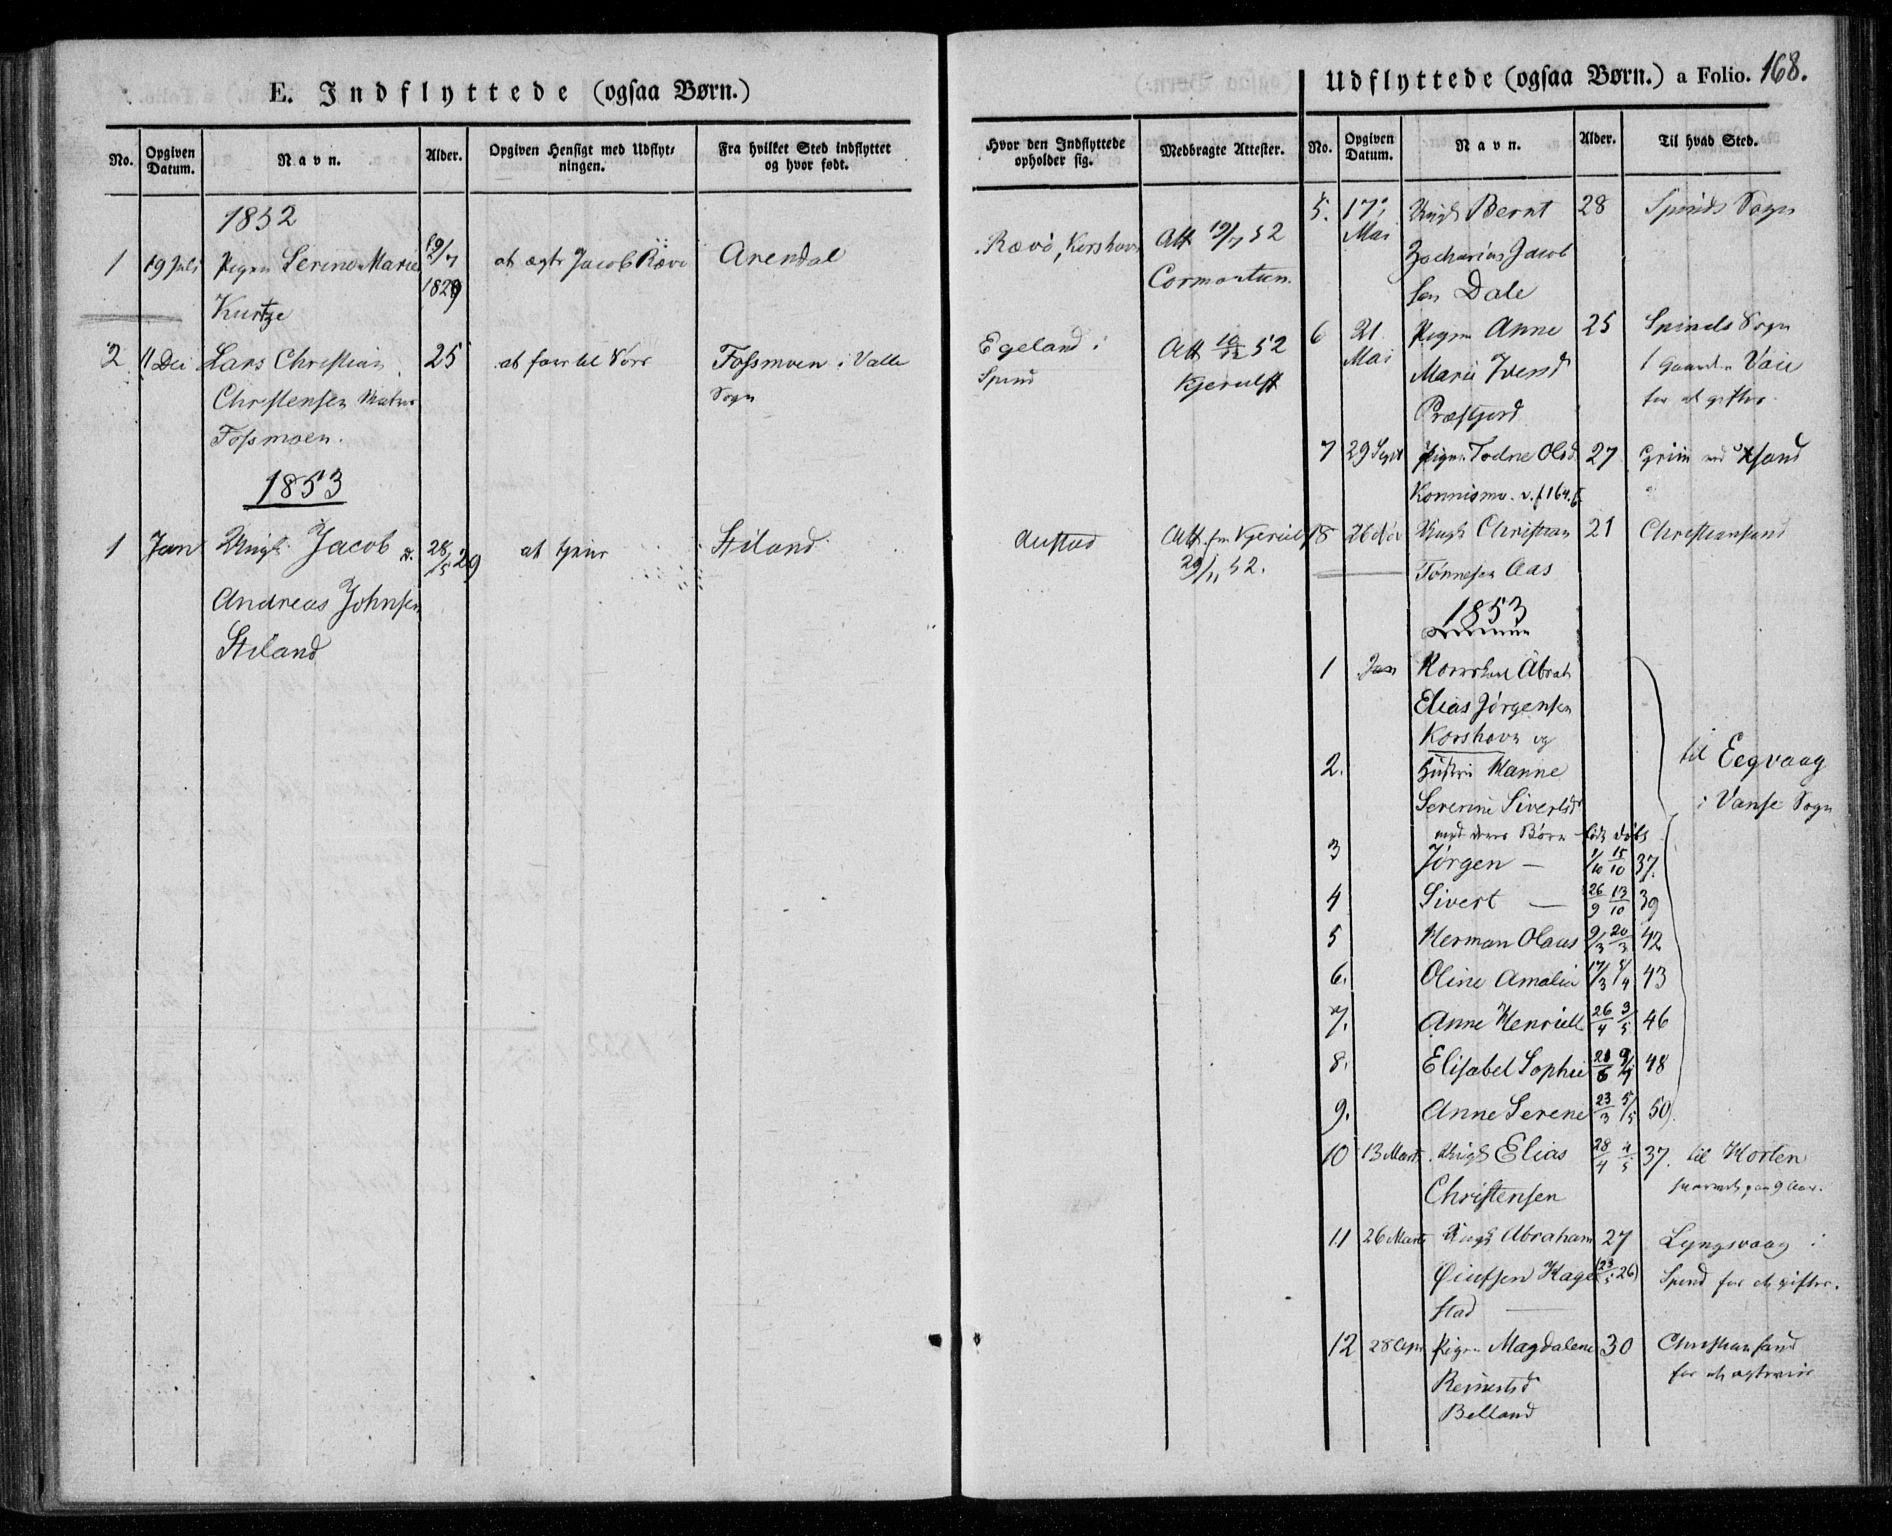 E. Indflyttede (ogsaa Børn.)
No. Opgiven Datum. Navn. Alder. Opgiven Hensigt med Udflytningen. Fra hvilket Sted indflyttet og hvor født.
Hvor den Indflyttede opholder sig. Medbragte Attester.
1852
1 19 Juli Pigen Serine Marie 19/7 at ægte Jacob Rævø Arendal Rævø, Korshavn Att 19/7 52
Kurtze 1829 Cormontan.
2 11 Dec Lars Christian 25 at fare til Søes Fossmoen i Valle Egeland i Att 10/12 52
Christensen Sogn Spind Kjerulf
Fossmoen.
1853
1 Jan Ungk. Jacob 28/5 29 at tjene Stiland Austad Att. fra Kjerulf
Andreas Johnsen 29/11 52.
Stiland
Udflyttede (ogsaa Børn.) a Folio. 168.
No. Opgiven Datum. Navn. Alder. Til hvad Sted.
5. 17 Mai Ungk Bernt 28 Spinds Sogn
Zacharias Jacob
sen Dale
6 21 Mai Pigen Anne 25 Spinds Sogn
Marie Iversd Gaarden Vaie
Præstjord for at giftes.
7 29 Sept Pigen Todne Olsd. 27 Grim ved Xsand
Konnismo. v. f 164. 6
8 26 Nov Ungk Christian 21 Christiansand
Tønnesen Aas
1853
1 Jan Abrah
Elias Jørgensen
Korshavn og
2. Hustru Hanne til Eegvaag
Serine Sivertsdr i Vanse Sogn
med deres Børn født døbt
3 Jørgen — 1/10 15/10 37.
4 Sivert — 26/9 13/10 39
5 Herman Olaus 9/3 20/3 42
6. Oline Amalia 17/3 5/4 43
7. Anne Henriette 26/4 3/5 46
8. Elisabet Sophie 48
9. Anne Serene 23/3 5/5 50
10 13 Marts Ungk Elias 28/4 4/5 37. til Horten
Christensen paa 9 Aar.
11 26 Marts Ungk Abraham 27 Lyngsvaag i
Øiufsen Hage (23/5 26) Spind for at giftes.
stad
12 28 Apr Pigen Magdalene 30 Christiansand
Reinertsd for at
Belland